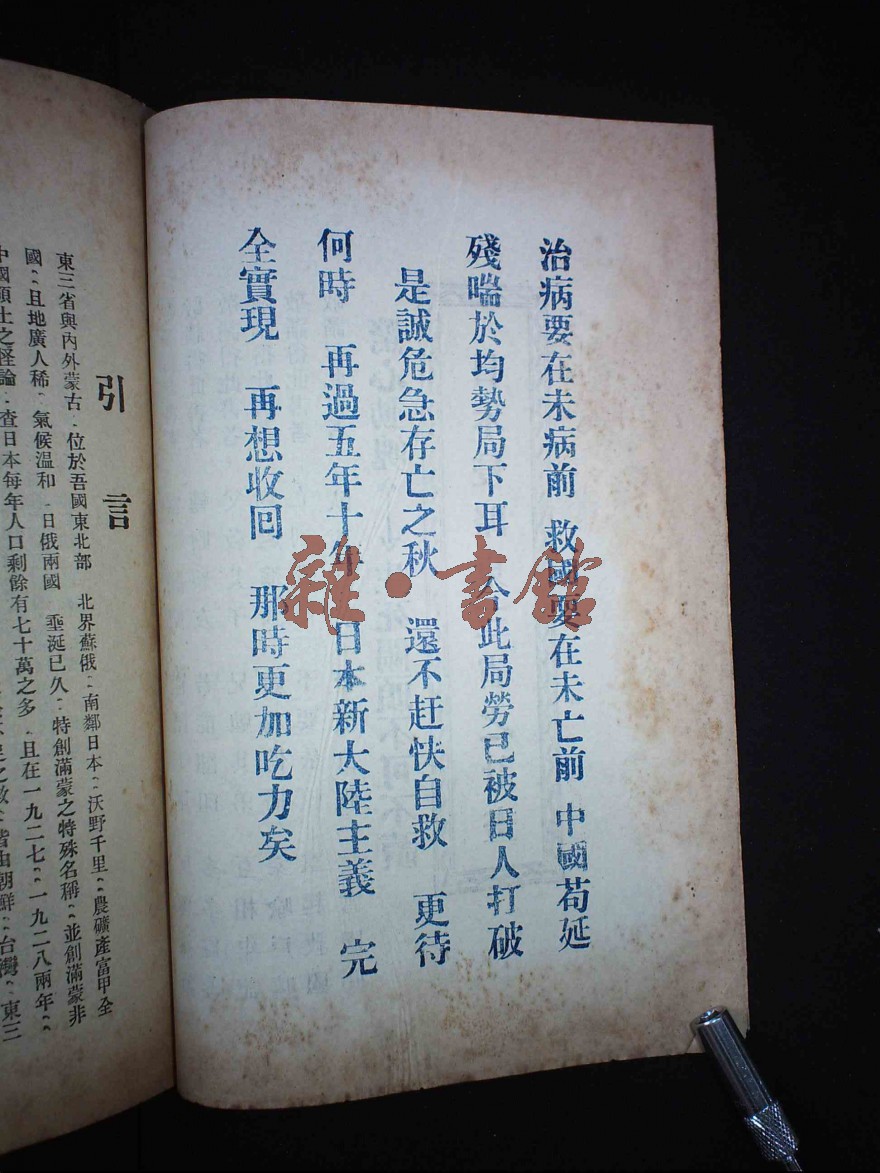 治病要在未病前 救國要在未亡前 中國苟延
殘喘於均勢局下耳 今此局勞已被日人打破
是誠危急存亡之秋 還不赶快自救 更待
何時 再過五年十年 日本新大陸主義 完
全實現 再想收回 那時更加吃力矣
雜·書館
引言
東三省與內外蒙古.位於吾國東北部 北界蘇俄.南鄰日本、沃野千里、農礦產富甲全
國、且地廣人稀.氣候温和 日俄兩國 垂涎已久、特創滿蒙之特殊名稱、並創滿蒙非
中國領土之怪論.查日本每年人口剩餘有七十萬之多 且在一九二七、一九二八兩年、
皆由朝鮮、台灣、東三